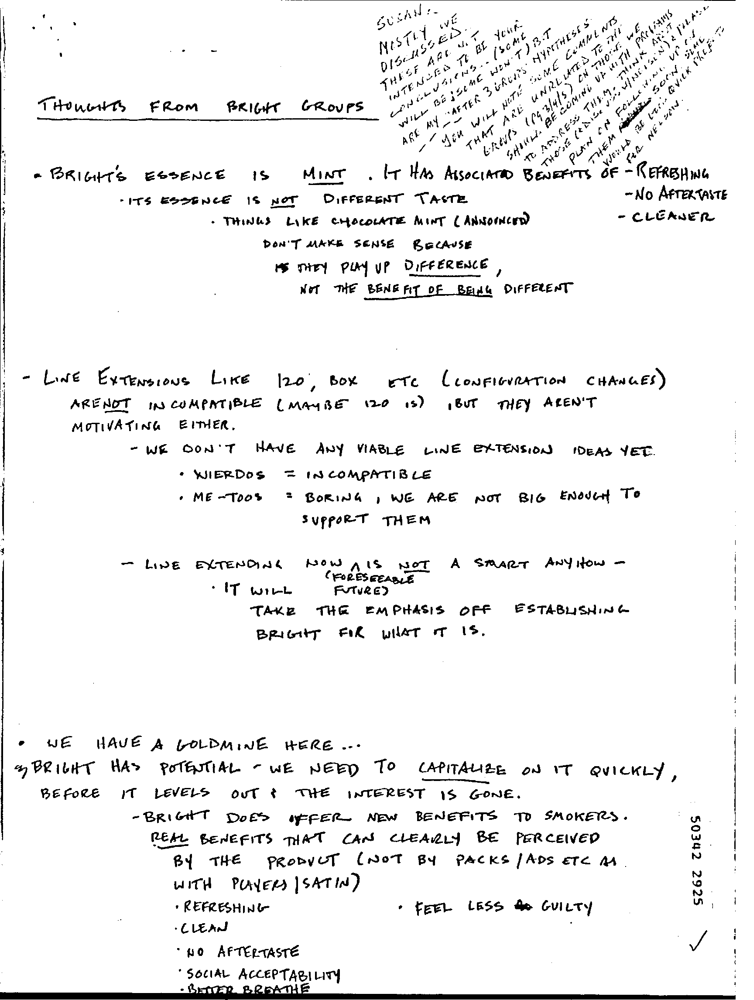 SUSAN:-
MOSTLY WE
DISCUSSED.
THESE ARE NOT
INTENDED TO BE YOUR
CONCLUSIONS... (SOME
WILL BE; SOME WON'T) BUT
ARE MY "AFTER 3 GROUPS" HYPOTHESES.
-- YOU WILL NOTE SOME COMMENTS
THAT ARE UNRELATED TO THE
GROUPS (PG 3/4/5) ON THOSE WE
SHOULD BE COMING UP WITH PROGRAMS
TO ADDRESS THEM. THINK ABOUT
THOSE &
PLAN ON FOLLOWING UP ON
THEM SOON. SOME
WOULD BE
FOR NELSON.
THOUGHTS FROM BRIGHT GROUPS
- BRIGHT'S ESSENCE IS MINT. IT HAS ASSOCIATED BENEFITS OF - REFRESHING
· ITS ESSENCE IS NOT DIFFERENT TASTE - NO AFTERTASTE
· THINGS LIKE CHOCOLATE MINT (ANNOUNCED) - CLEANER
DON'T MAKE SENSE BECAUSE
THEY PLAY UP DIFFERENCE,
NOT THE BENEFIT OF BEING DIFFERENT
- LINE EXTENSIONS LIKE 120, BOX ETC (CONFIGURATION CHANGES)
ARE NOT INCOMPATIBLE (MAYBE 120 IS), BUT THEY AREN'T
MOTIVATING EITHER.
- WE DON'T HAVE ANY VIABLE LINE EXTENSION IDEAS YET.
· WIERDOS = INCOMPATIBLE
· ME-TOOS = BORING, WE ARE NOT BIG ENOUGH TO
SUPPORT THEM
- LINE EXTENDING NOW ^ IS NOT A SMART ANYHOW -
(FORESEEABLE
FUTURE)
· IT WILL
TAKE THE EMPHASIS OFF ESTABLISHING
BRIGHT FOR WHAT IT IS.
· WE HAVE A GOLDMINE HERE...
BRIGHT HAS POTENTIAL - WE NEED TO CAPITALIZE ON IT QUICKLY,
BEFORE IT LEVELS OUT & THE INTEREST IS GONE.
- BRIGHT DOES OFFER NEW BENEFITS TO SMOKERS.
REAL BENEFITS THAT CAN CLEARLY BE PERCEIVED
BY THE PRODUCT (NOT BY PACKS/ADS ETC AS
WITH PLAYERS/SATIN)
· REFRESHING · FEEL LESS GUILTY
· CLEAN
· NO AFTERTASTE
· SOCIAL ACCEPTABILITY
· BETTER BREATHE
50342 2925